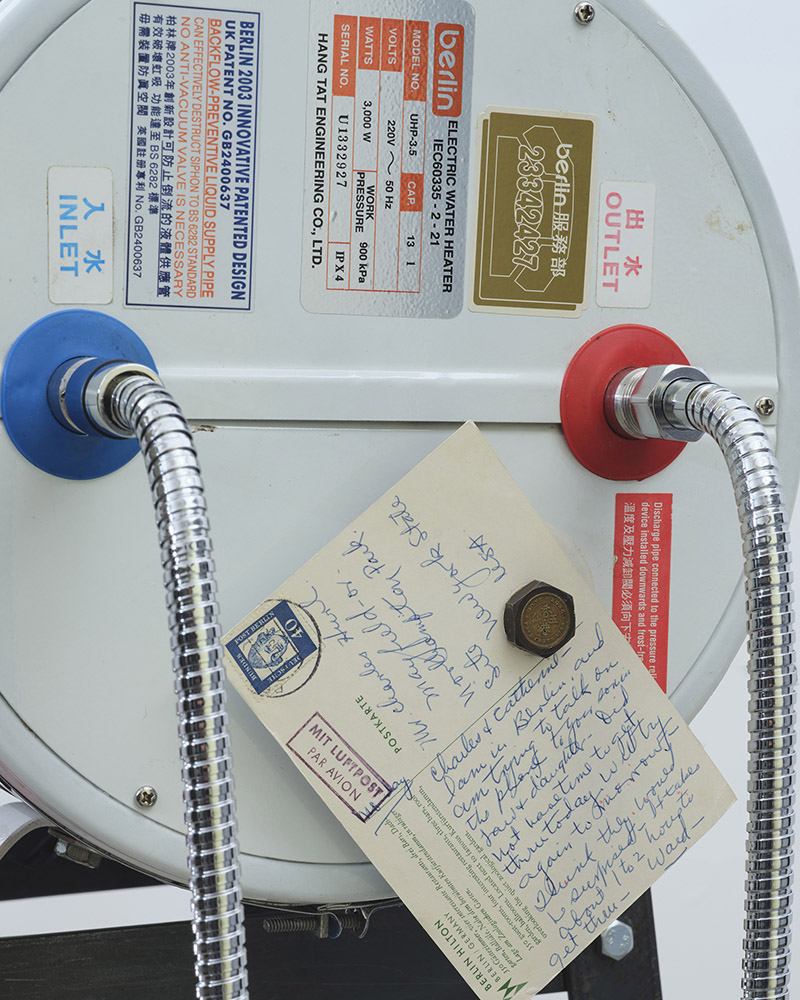 BERLIN 2003 INNOVATIVE PATENTED DESIGN
UK PATENT NO. GB2400637
BACKFLOW-PREVENTIVE LIQUID SUPPLY PIPE
CAN EFFECTIVELY DESTRUCT SIPHON TO BS 6282 STANDARD
NO ANTI-VACUUM VALVE IS NECESSARY
柏林牌2003年創新設計可防止倒流的液體供應管
有效破壞虹吸 功能達至 BS 6282 標準
毋需裝置防真空閥 英國註冊專利 No. GB2400637
入水
INLET
berlin
ELECTRIC WATER HEATER
IEC60335 - 2 - 21
MODEL NO. UHP-3.5 CAP. 13 l
VOLTS 220V ~ 50 Hz
WATTS 3,000 W WORK PRESSURE 900 kPa
SERIAL NO. U1332927 IPX4
HANG TAT ENGINEERING CO., LTD.
berlin 服務部
23342427
出水
OUTLET
Discharge pipe connected to the pressure relief
device installed downwards and frost-fr
溫度及壓力減卸閥必須向下
DEUTSCHE
BUNDESPOST BERLIN
40
MIT LUFTPOST
PAR AVION
POSTKARTE
Mr. Charles Hurd
Mayfield or
Northampton Park,
New York State
Charles & Catherine
I am in Berlin and
am trying to talk on
the phone to your son in
law & daughter. Did
not have time to get
thru today. Will try
again tomorrow -
think they would
be surprised - It takes
about 1 to 2 hours to
get them - Ward -
BERLIN HILTON
BERLIN, GERMANY